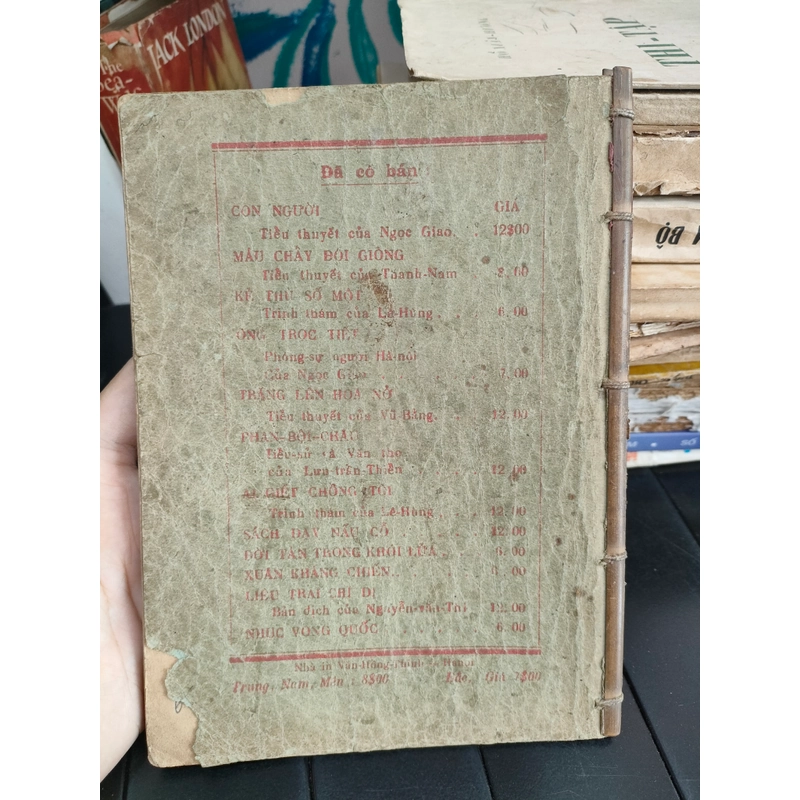 JACK LONDON
The
Sea-
THI-TẬP
BỘ
Đã có bán :
CON NGƯỜI GIÁ
Tiểu thuyết của Ngọc Giao. . 12$00
MÁU CHẢY ĐÔI GIÒNG
Tiểu thuyết của Thanh-Nam 8,00
KẺ THÙ SỐ MỘT
Trinh thám của Lê-Hùng . . 6,00
ÔNG TRỌC TIẾT
Phóng-sự người Hà-nội
Của Ngọc Giao 7,00
TRĂNG LÊN HOA NỞ
Tiểu thuyết của Vũ-Bằng. . . 12,00
PHAN-BỘI-CHÂU
Tiểu-sử và Văn thơ
của Lưu-trần-Thiện 12,00
AI GIẾT CHỒNG TÔI
Trinh thám của Lê-Hùng . . . 12,00
SÁCH DẠY NẤU CỖ . . . 12,00
ĐỜI TÀN TRONG KHÓI LỬA . . 6,00
XUÂN KHÁNG CHIẾN. .
LIÊU TRAI CHÍ DỊ
Bản dịch của 12,00
NHỤC VONG QUỐC . . . . 6,00
Nhà in Hanoi
Trung, Nam, Miên : Lào, Giá 7$00
SỐ